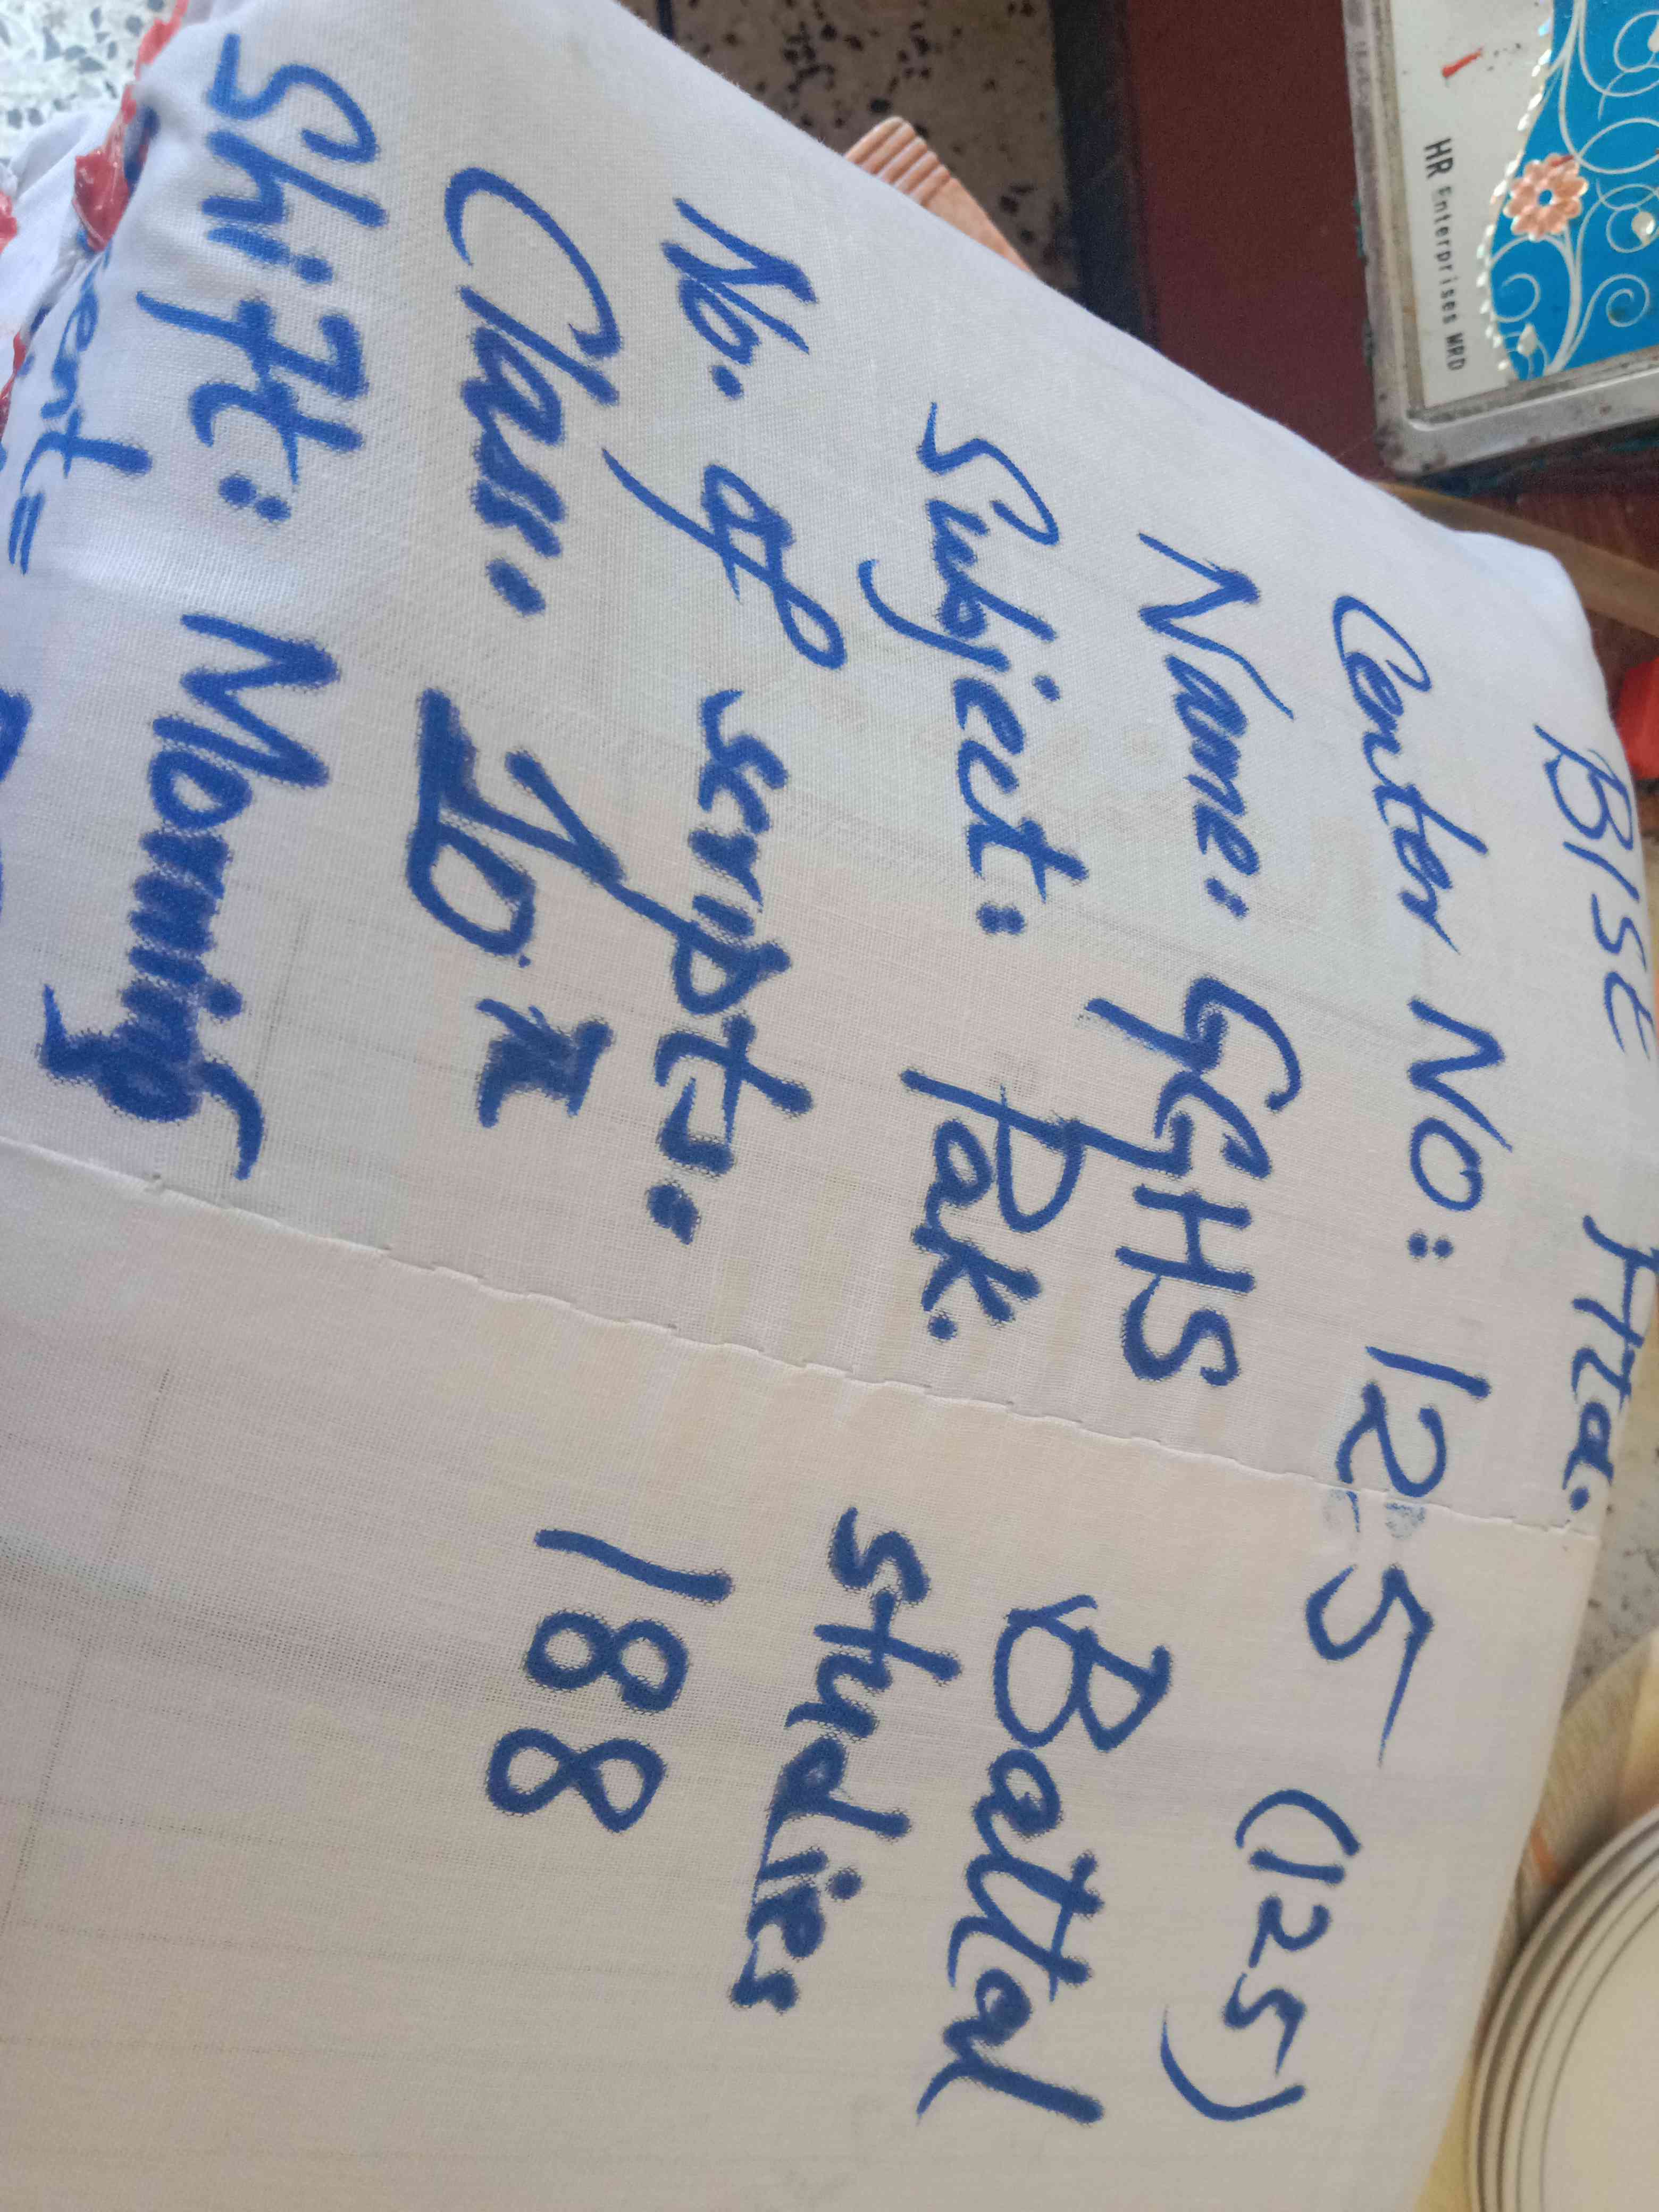 BISE Atd.
Center No: 125 (125)
Name: GGHS Battal
Subject: Pak. studies
No. of script:- 188
Class. 10th
Shift: Morning
HR Enterprises MRD